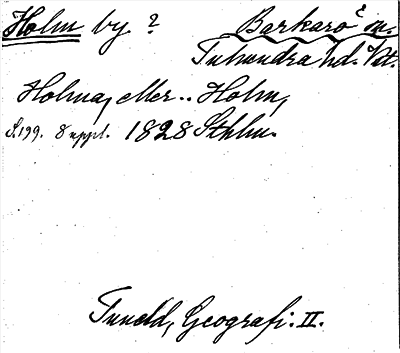 Holm by ? Barkarö sn.
Tuhundra hd. Vstm.
Holma, eller .. Holm,
S.199. 8 uppl. 1828 Sthlm.
Tuneld, Geografi. II.